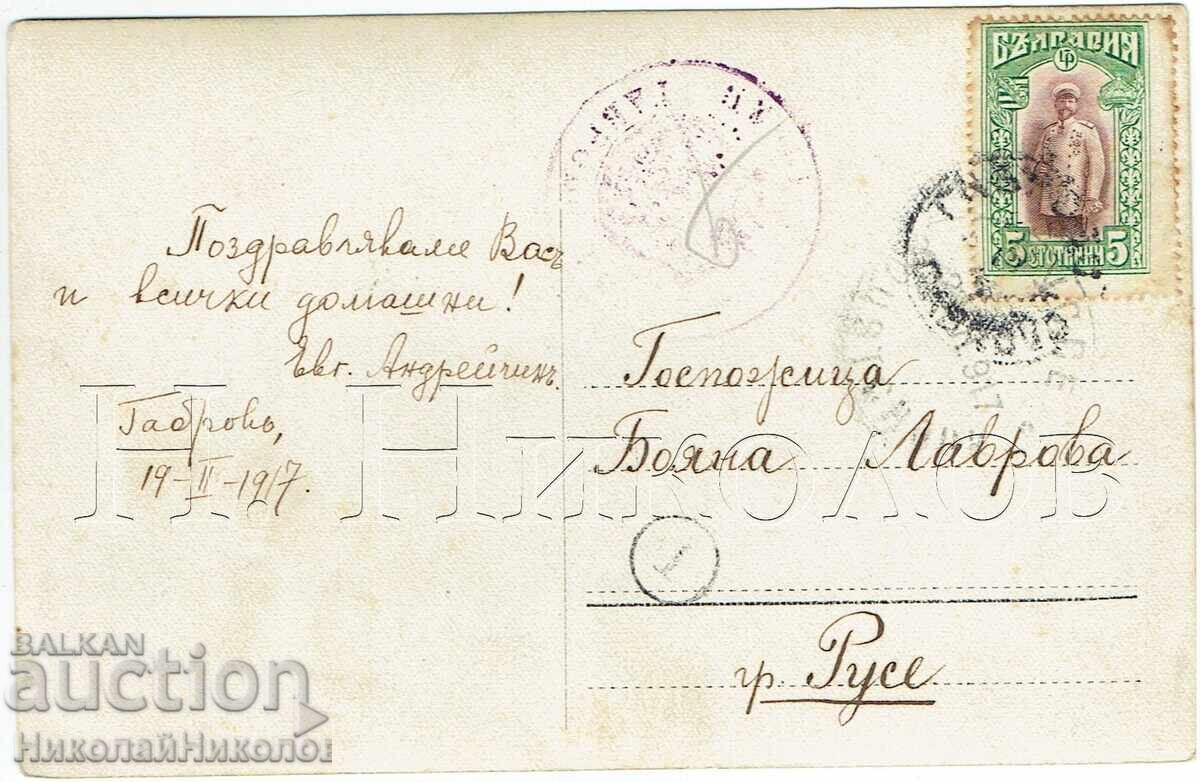 БЪЛГАРИЯ
5 СТОТИНКИ 5
Поздравляваме Васъ
и всички домашни!
Евг. Андрейчинъ.
Габрово,
19-II-1917.
Госпожица
Бояна Лаврова
1
гр. Русе
Н. Николов
BALKAN
auction
НиколайНиколов